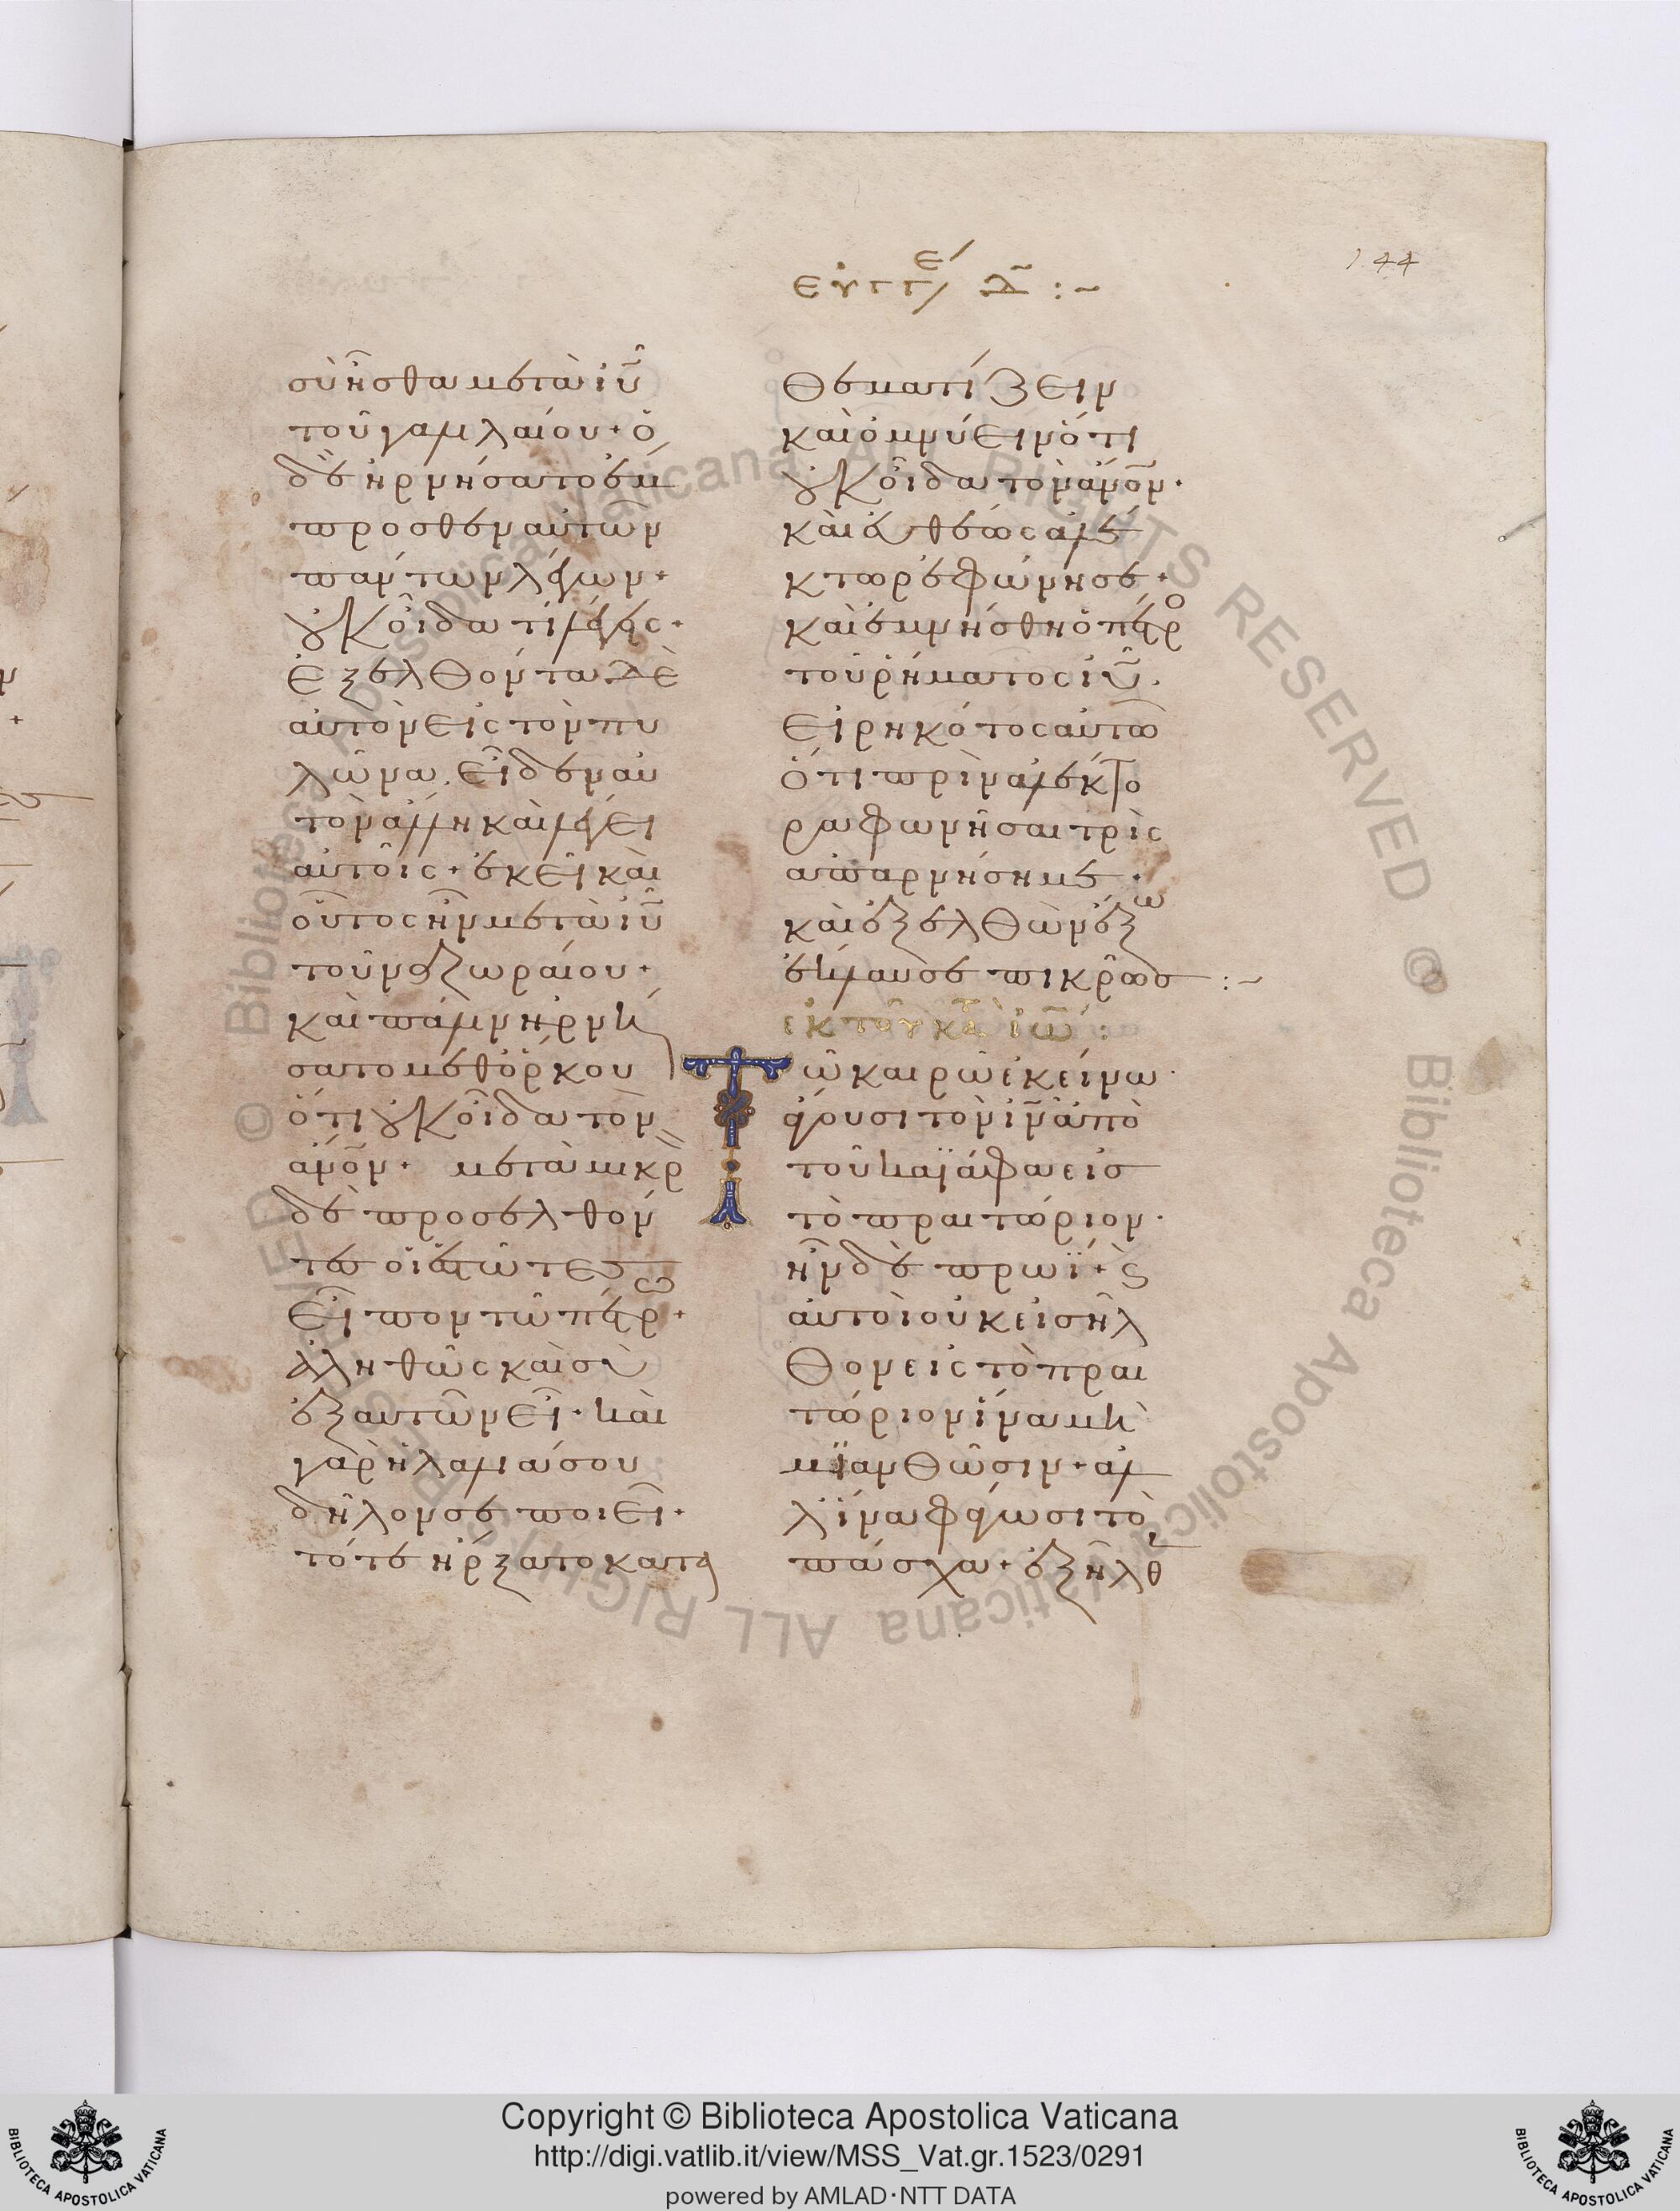 144
εὐαγγέ/ Δ̅ :~
σὺ ἦσθα μετὰ ἰ̅υ̅
τοῦ γαλιλαίου + ὁ
δὲ ἠρνήσατο ἔμ
προσθεν αὐτῶν
πάντων λέγων +
οὐκ οἶδα τί λέγεις +
Ἐξελθόντα δὲ
αὐτὸν εἰς τὸν πυ
λῶνα. εἶδεν αὐ
τὸν ἄλλη καὶ λέγει
αὐτοῖς + ἐκεῖ καὶ
οὗτος ἦν μετὰ ἰ̅υ̅
τοῦ ναζωραίου +
καὶ πάλιν ἠρνή
σατο μεθ ὅρκου
ὅτι οὐκ οἶδα τὸν
ἄ̅ν̅ο̅ν̅ + μετὰ μικρ
δὲ προσελθόν
τες οἱ ἑστῶτες
εἶπον τῶ πέτρω +
ἀληθῶς καὶ σὺ
ἐξ αὐτῶν εἶ + καὶ
γὰρ ἡ λαλιά σου
δῆλόν σε ποιεῖ +
τότε ἤρξατο κατα
θεματίζειν
καὶ ὀμνύειν ὅτι
οὐκ οἶδα τὸν ἄ̅ν̅ο̅ν̅ +
καὶ εὐθέως ἀλέ
κτωρ ἐφώνησε +
καὶ ἐμνήσθη ὁ πέτρο
τοῦ ῥήματος ἰ̅υ̅.
εἰρηκότος αὐτῶ
ὅτι πρὶν ἀλέκτο
ρα φωνῆσαι τρὶς
ἀπαρνήση με +
καὶ ἐξελθὼν ἔξω
ἔκλαυσε πικρῶς :~
ἐκ τοῦ κατὰ ἰω̅ :
Τῶ καιρῶ ἐκείνω·
ἄγουσι τὸν ἰ̅ν̅ ἀπὸ
τοῦ καϊάφα εἰς
τὸ πραιτώριον·
ἦν δὲ πρωΐ + ϛ
αὐτοὶ οὐκ εἰσῆλ
θον εἰς τὸ πραι
τώριον ἵνα μὴ
μϊανθῶσιν + ἀλ
λ ἵνα φάγωσι τὸ
πάσχα + ἐξῆλθ
Copyright © Biblioteca Apostolica Vaticana
http://digi.vatlib.it/view/MSS_Vat.gr.1523/0291
powered by AMLAD·NTT DATA
BIBLIOTECA APOSTOLICA VATICANA
BIBLIOTECA APOSTOLICA VATICANA
© Biblioteca Apostolica Vaticana ALL RIGHTS RESERVED © Biblioteca Apostolica Vaticana ALL RIGHTS RESERVED